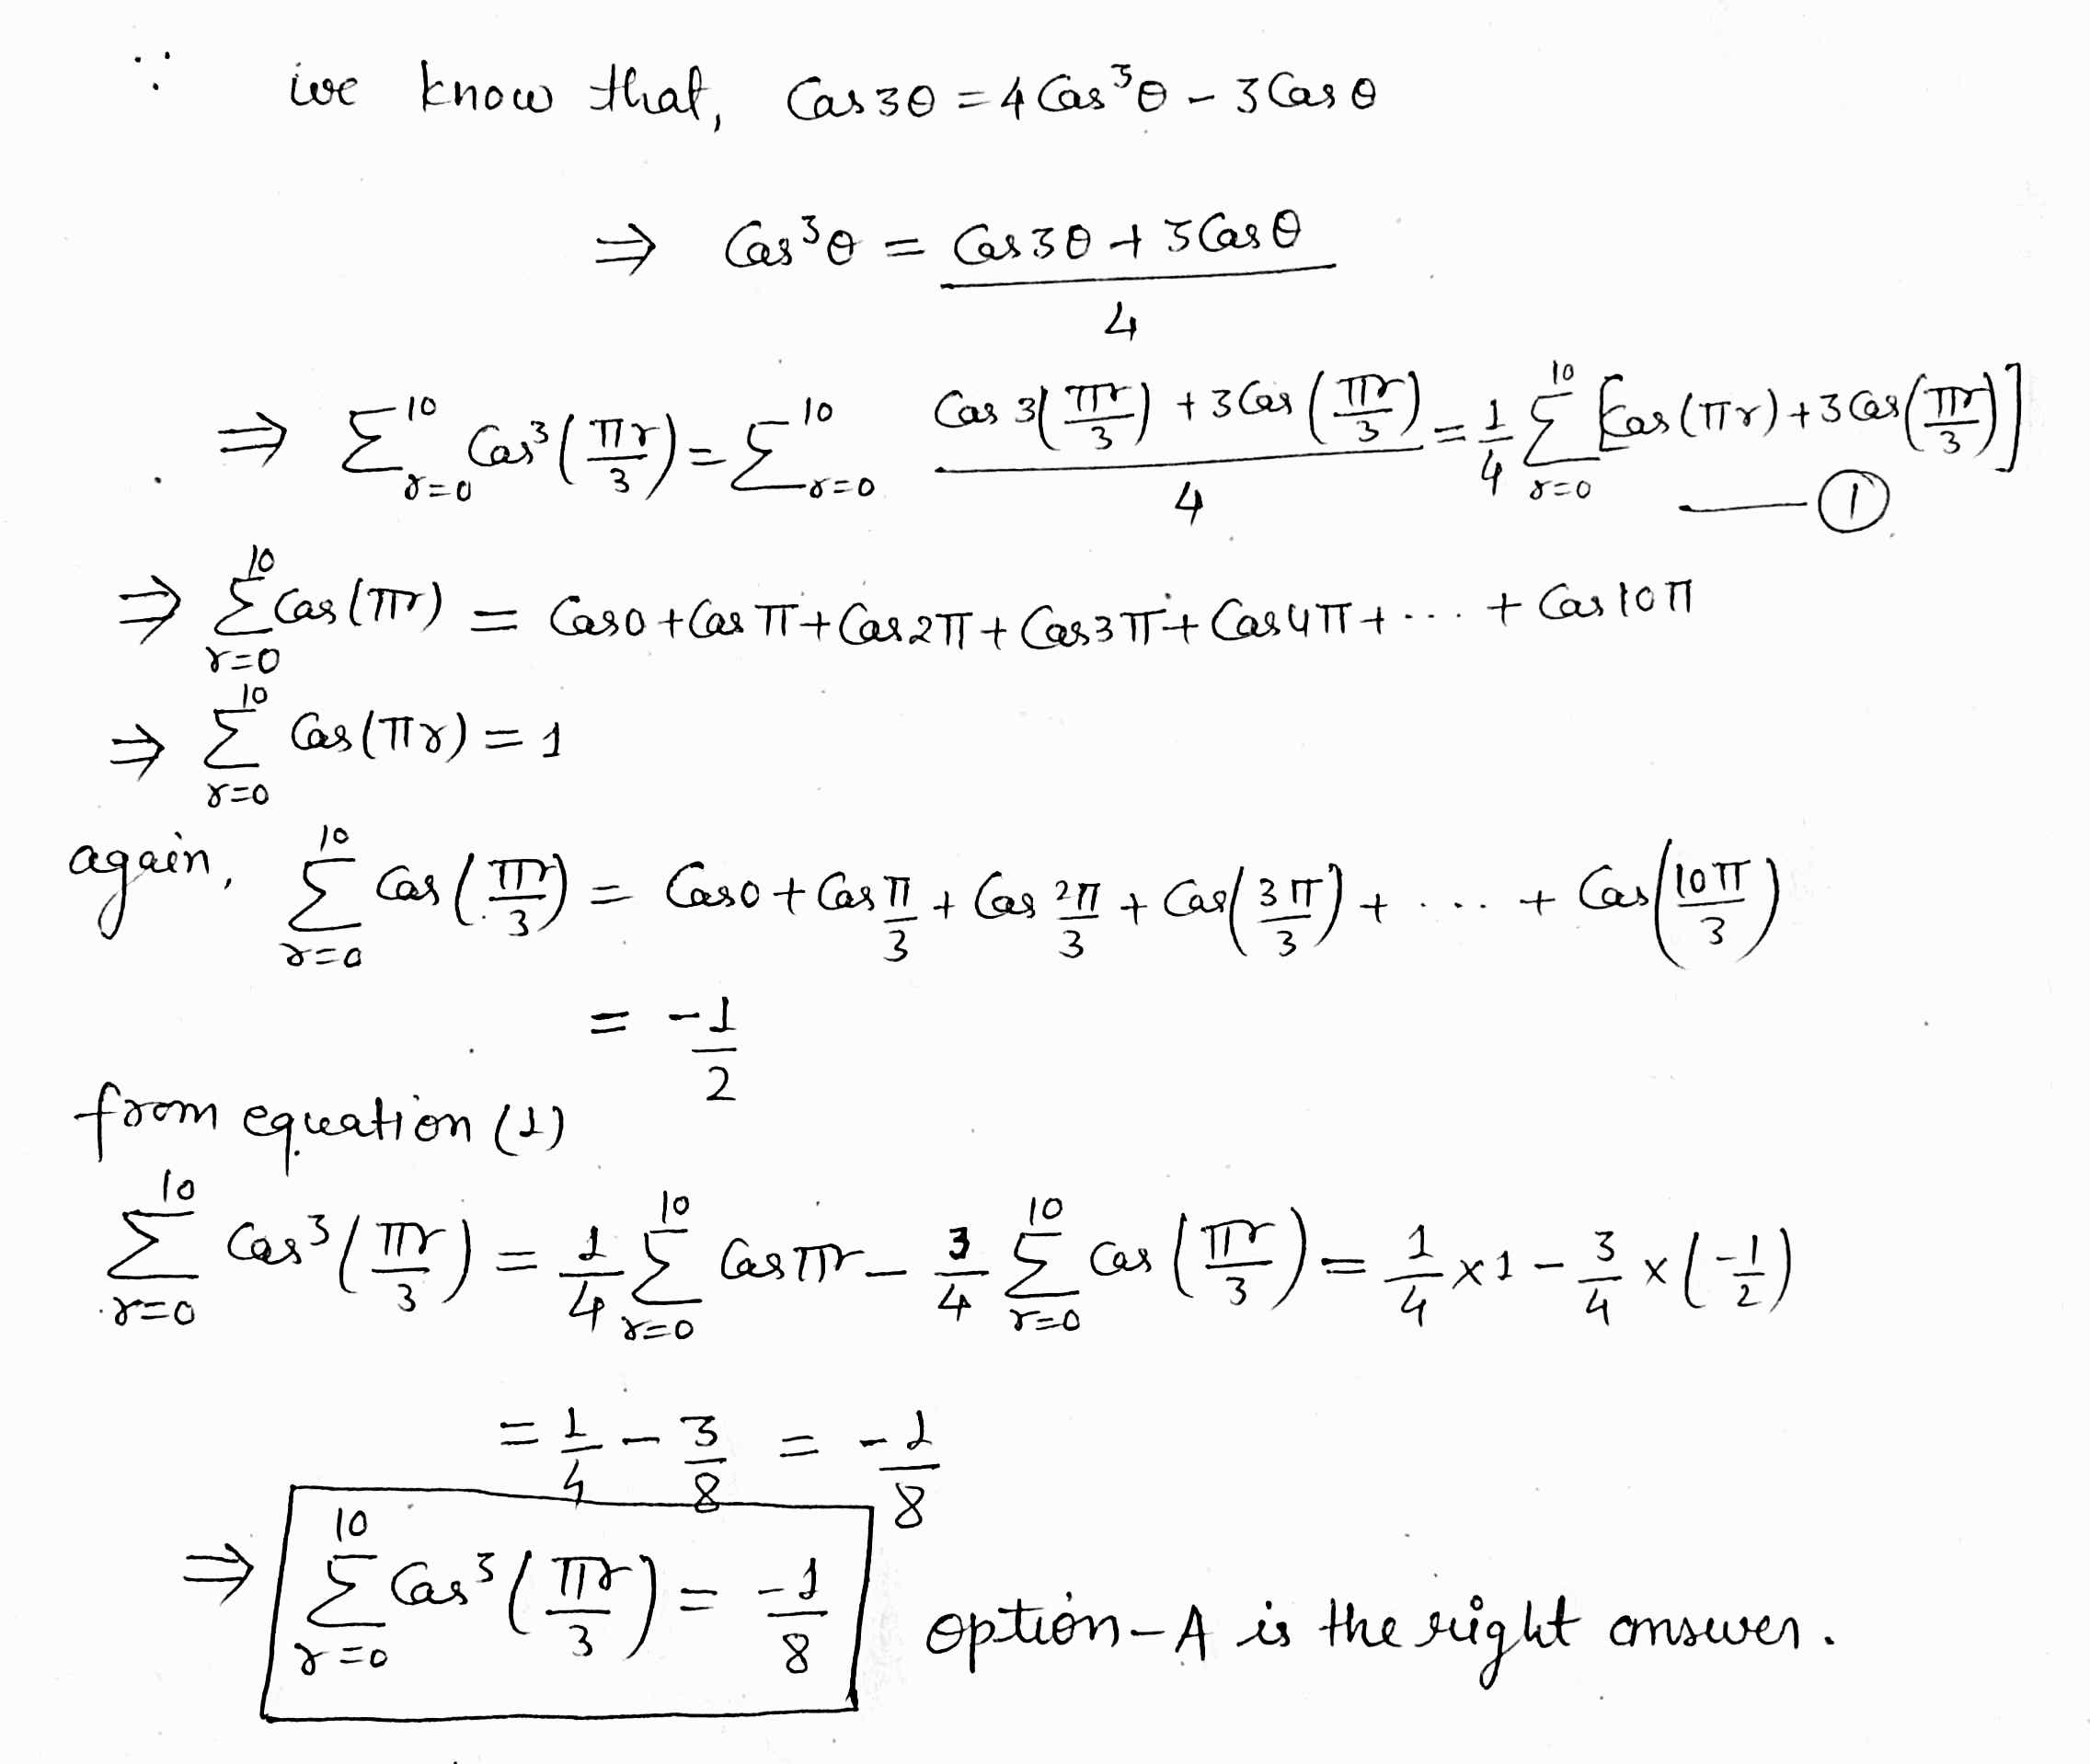 ∵ we know that, Cos3θ = 4Cos³θ - 3Cosθ
⇒ Cos³θ = (Cos3θ + 3Cosθ)/4
⇒ Σ_{r=0}^{10} Cos³(πr/3) = Σ_{r=0}^{10} (Cos 3(πr/3) + 3Cos(πr/3))/4 = 1/4 Σ_{r=0}^{10} [Cos(πr) + 3Cos(πr/3)] —— ①
⇒ Σ_{r=0}^{10} Cos(πr) = Cos0 + Cosπ + Cos2π + Cos3π + Cos4π + .... + Cos10π
⇒ Σ_{r=0}^{10} Cos(πr) = 1
again, Σ_{r=0}^{10} Cos(πr/3) = Cos0 + Cosπ/3 + Cos2π/3 + Cos(3π/3) + .... + Cos(10π/3)
= -1/2
from equation (1)
Σ_{r=0}^{10} Cos³(πr/3) = 1/4 Σ_{r=0}^{10} Cosπr - 3/4 Σ_{r=0}^{10} Cos(πr/3) = 1/4 × 1 - 3/4 × (-1/2)
= 1/4 - 3/8 = -1/8
⇒ Σ_{r=0}^{10} Cos³(πr/3) = -1/8 option-A is the right answer.